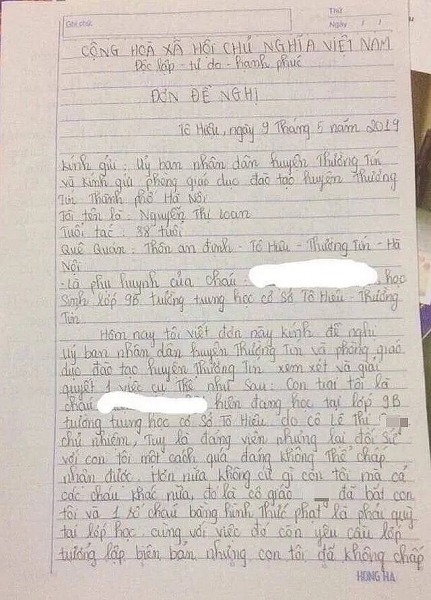 Ghi chú:
Thứ
Ngày / /
CỘNG HOÀ XÃ HỘI CHỦ NGHĨA VIỆT NAM
Độc lập - tự do - hạnh phúc
ĐƠN ĐỀ NGHỊ
Tô Hiệu, ngày 9 Tháng 5 năm 2019
Kính gửi : Uỷ ban nhân dân huyện Thường Tín
và kính gửi phòng giáo dục đào tạo huyện Thường
Tín Thành phố Hà Nội
Tôi tên là : Nguyễn Thị Loan
Tuổi tác : 38 tuổi
Quê Quán : Thôn an định - Tô Hiệu - Thường Tín - Hà
Nội
- Là phụ huynh của cháu : học
Sinh lớp 9B tường tung học cơ Sở Tô Hiệu - Thường
Tín
Hôm nay tôi viết đơn này kính đề nghị
Uỷ ban nhân dân huyện Thường Tín và phòng giáo
dục đào tạo huyện Thường Tín xem xét và giải
quyết 1 việc cụ Thể như Sau : Con trai tôi là
cháu hiện đang học tại lớp 9B
tường tung học cơ Sở Tô Hiệu do cô Lê Thị
chủ nhiệm, Tuy là đảng viên nhưng lại đối Sử
với con tôi một cách quá đáng không Thể chấp
nhận được. Hơn nữa không cứ gì con tôi mà cả
các cháu khác nữa, đó là cô giáo đã bắt con
tôi và 1 số cháu bằng hình Thức phạt là phải quỳ
tại lớp học. cùng với việc đó còn yêu cầu lớp
tưởng lập biên bản nhưng con tôi đã không chấp
HONG HA